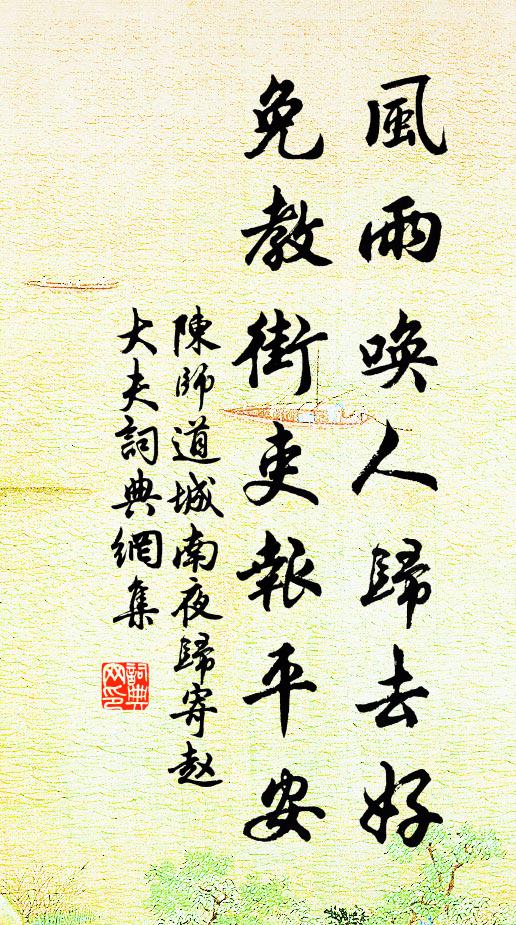 風雨喚人歸去好
免教街吏報平安
陳師道城南夜歸寄赵
大夫詞典網集
詞典
网印